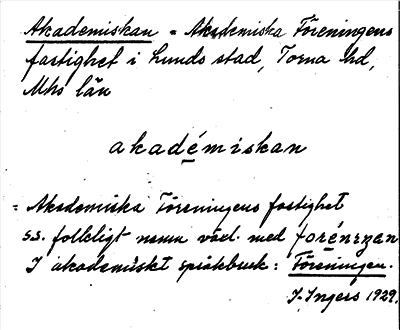 Akademiskan = Akademiska Föreningens
fastighet i Lunds stad, Torna hd,
Mhs län
akadémiskan
= Akademiska Föreningens fastighet
s.s. folkligt namn växl. med forénızan
I akademiskt språkbruk: Föreningen.
I. Ingers 1929.